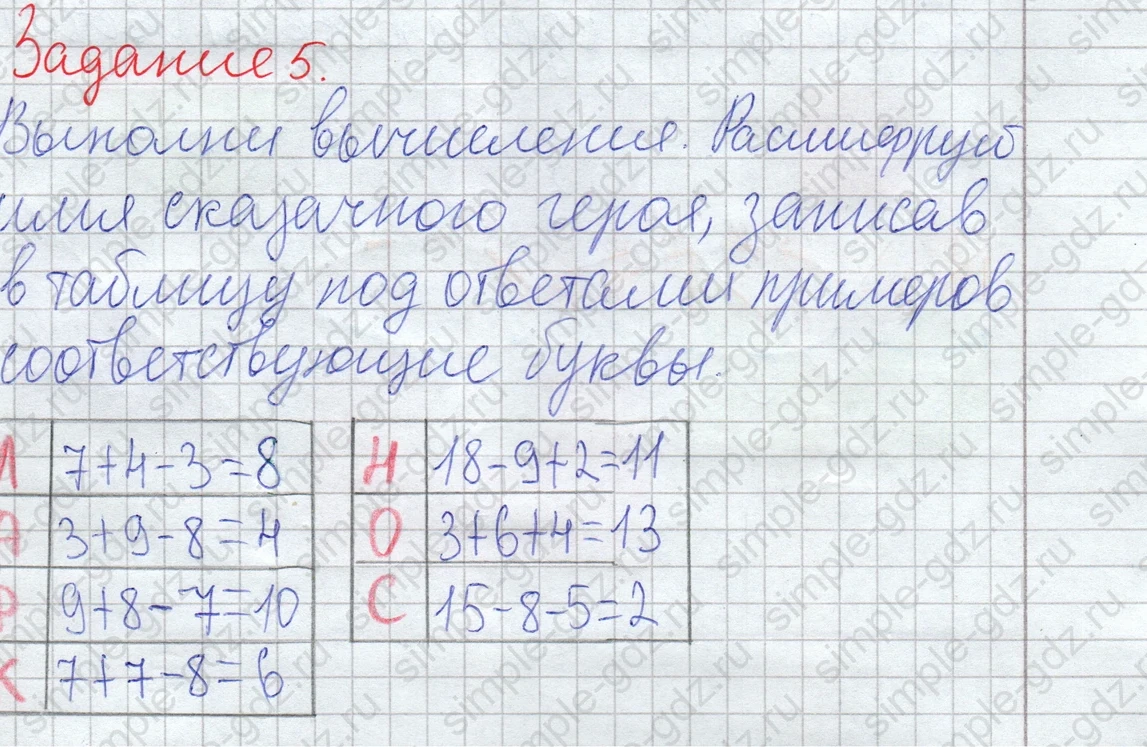 Задание 5.
Выполни вычисления. Расшифруй
имя сказачного героя, записав
в таблицу под ответами примеров
соответствующие буквы.
7+4-3=8
Н 18-9+2=11
А 3+9-8=4
О 3+6+4=13
Р 9+8-7=10
С 15-8-5=2
К 7+7-8=6
simple-gdz.ru